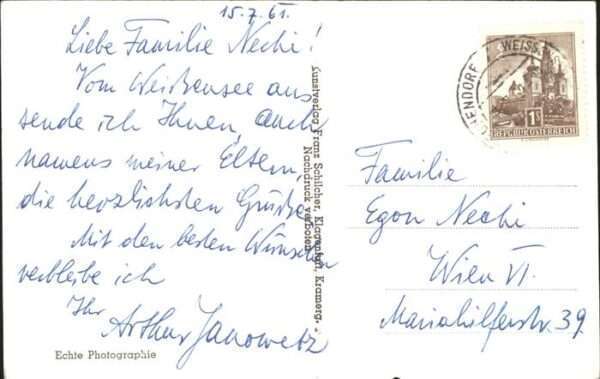 15.7.61.
Liebe Familie Nechi!
Vom Weißensee aus
sende ich Ihnen, auch
namens meiner Eltern
die herzlichsten Grüße.
Mit den besten Wünschen
verbleibe ich
Ihr
Arthur Janowetz
Echte Photographie
Kunstverlag Franz Schilcher, Klagenfurt, Kramerg.
Nachdruck verboten
ENDORF WEISS
1S
REPUBLIK ÖSTERREICH
Familie
Egon Nechi
Wien VI.
Mariahilferstr. 39